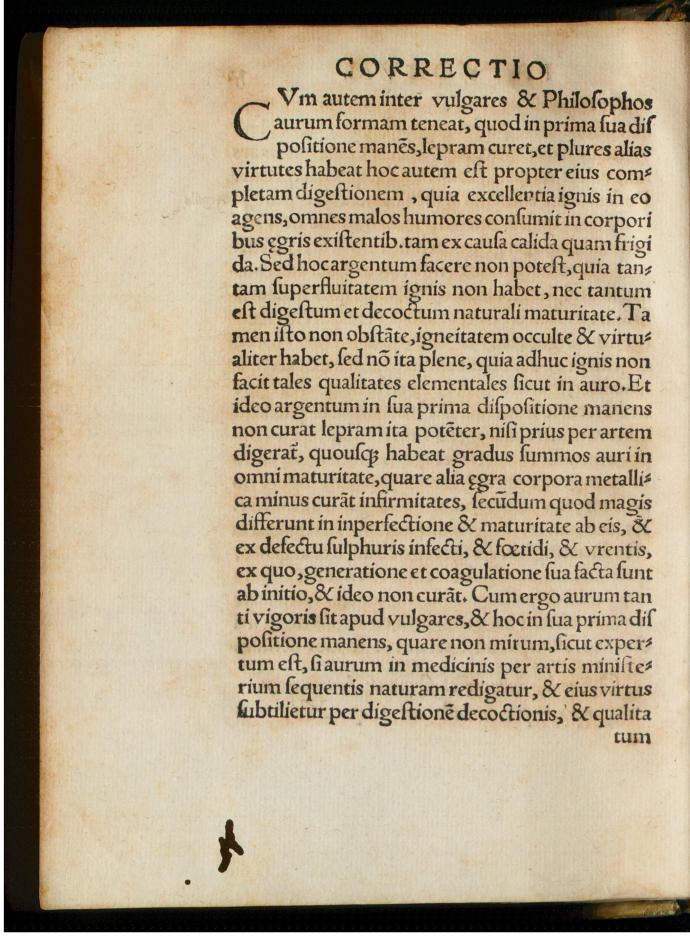 CORRECTIO
CVm autem inter vulgares & Philoſophos
aurum formam teneat, quod in prima ſua diſ
poſitione manēs, lepram curet, et plures alias
virtutes habeat hoc autem eſt propter eius com⸗
pletam digeſtionem , quia excellentia ignis in eo
agens, omnes malos humores conſumit in corpori
bus ęgris exiſtentib. tam ex cauſa calida quam frigi
da. Sed hoc argentum facere non poteſt, quia tan⸗
tam ſuperfluitatem ignis non habet, nec tantum
eſt digeſtum et decoctum naturali maturitate. Ta
men iſto non obſtāte, igneitatem occulte & virtu⸗
aliter habet, ſed nō ita plene, quia adhuc ignis non
facit tales qualitates elementales ſicut in auro. Et
ideo argentum in ſua prima diſpoſitione manens
non curat lepram ita potēter, niſi prius per artem
digerat̄, quouſqꝫ habeat gradus ſummos auri in
omni maturitate, quare alia ęgra corpora metalli⸗
ca minus curāt infirmitates, ſecūdum quod magis
differunt in inperfectione & maturitate ab eis, &̄
ex defectu ſulphuris infecti, & fœtidi, & vrentis,
ex quo, generatione et coagulatione ſua facta ſunt
ab initio, & ideo non curāt. Cum ergo aurum tan
ti vigoris ſit apud vulgares, & hoc in ſua prima diſ
poſitione manens, quare non mirum, ſicut exper⸗
tum eſt, ſi aurum in medicinis per artis miniſte⸗
rium ſequentis naturam redigatur, & eius virtus
ſubtilietur per digeſtionē decoctionis, & qualita
tum